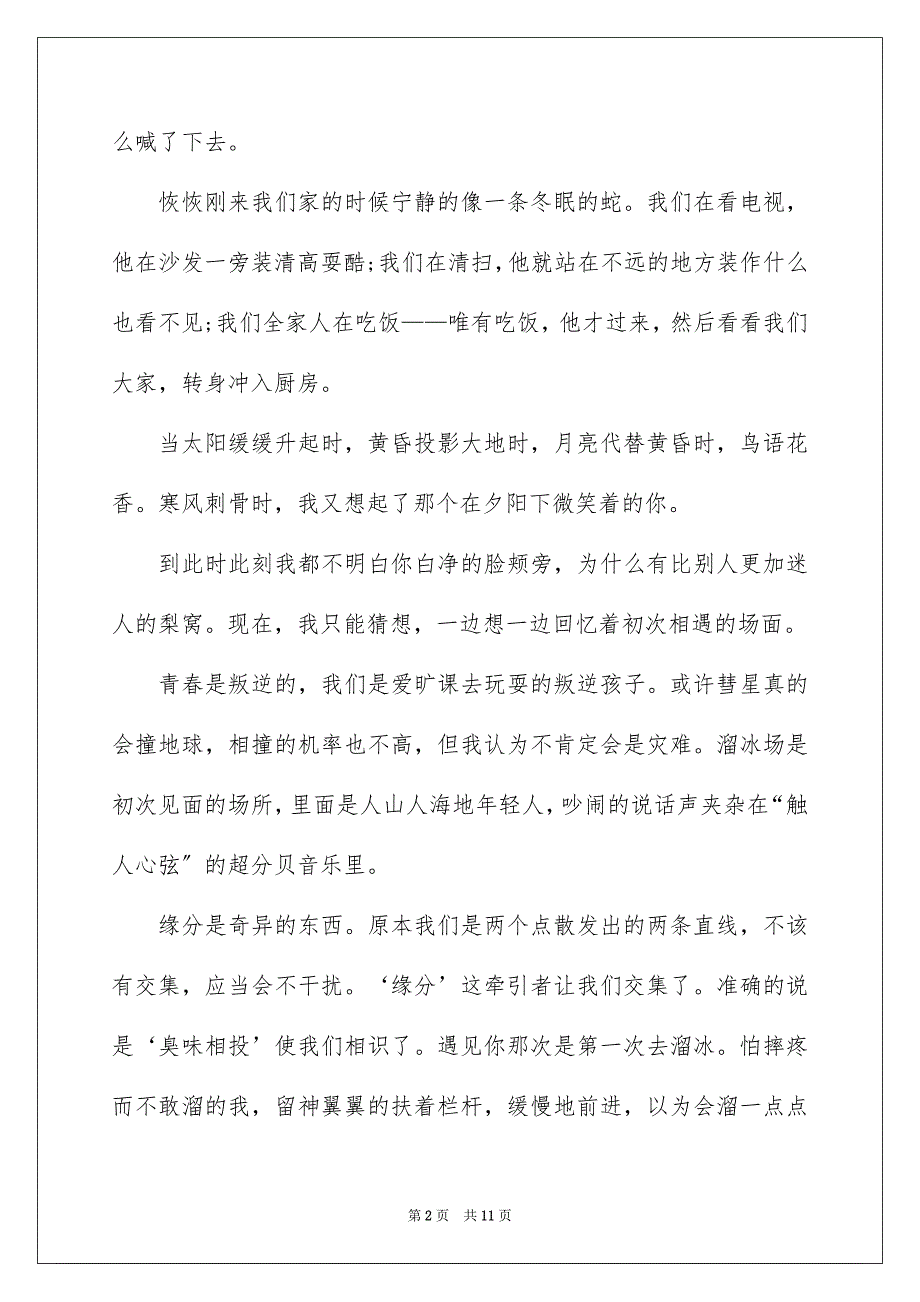 么喊了下去。
恢恢刚来我们家的时候宁静的像一条冬眠的蛇。我们在看电视，
他在沙发一旁装清高耍酷;我们在清扫，他就站在不远的地方装作什么
也看不见;我们全家人在吃饭——唯有吃饭，他才过来，然后看看我们
大家，转身冲入厨房。
当太阳缓缓升起时，黄昏投影大地时，月亮代替黄昏时，鸟语花
香。寒风刺骨时，我又想起了那个在夕阳下微笑着的你。
到此时此刻我都不明白你白净的脸颊旁，为什么有比别人更加迷
人的梨窝。现在，我只能猜想，一边想一边回忆着初次相遇的场面。
青春是叛逆的，我们是爱旷课去玩耍的叛逆孩子。或许彗星真的
会撞地球，相撞的机率也不高，但我认为不肯定会是灾难。溜冰场是
初次见面的场所，里面是人山人海地年轻人，吵闹的说话声夹杂在“触
人心弦〞的超分贝音乐里。
缘分是奇异的东西。原本我们是两个点散发出的两条直线，不该
有交集，应当会不干扰。‘缘分’这牵引者让我们交集了。准确的说
是‘臭味相投’使我们相识了。遇见你那次是第一次去溜冰。怕摔疼
而不敢溜的我，留神翼翼的扶着栏杆，缓慢地前进，以为会溜一点点
第 2 页 共 11 页